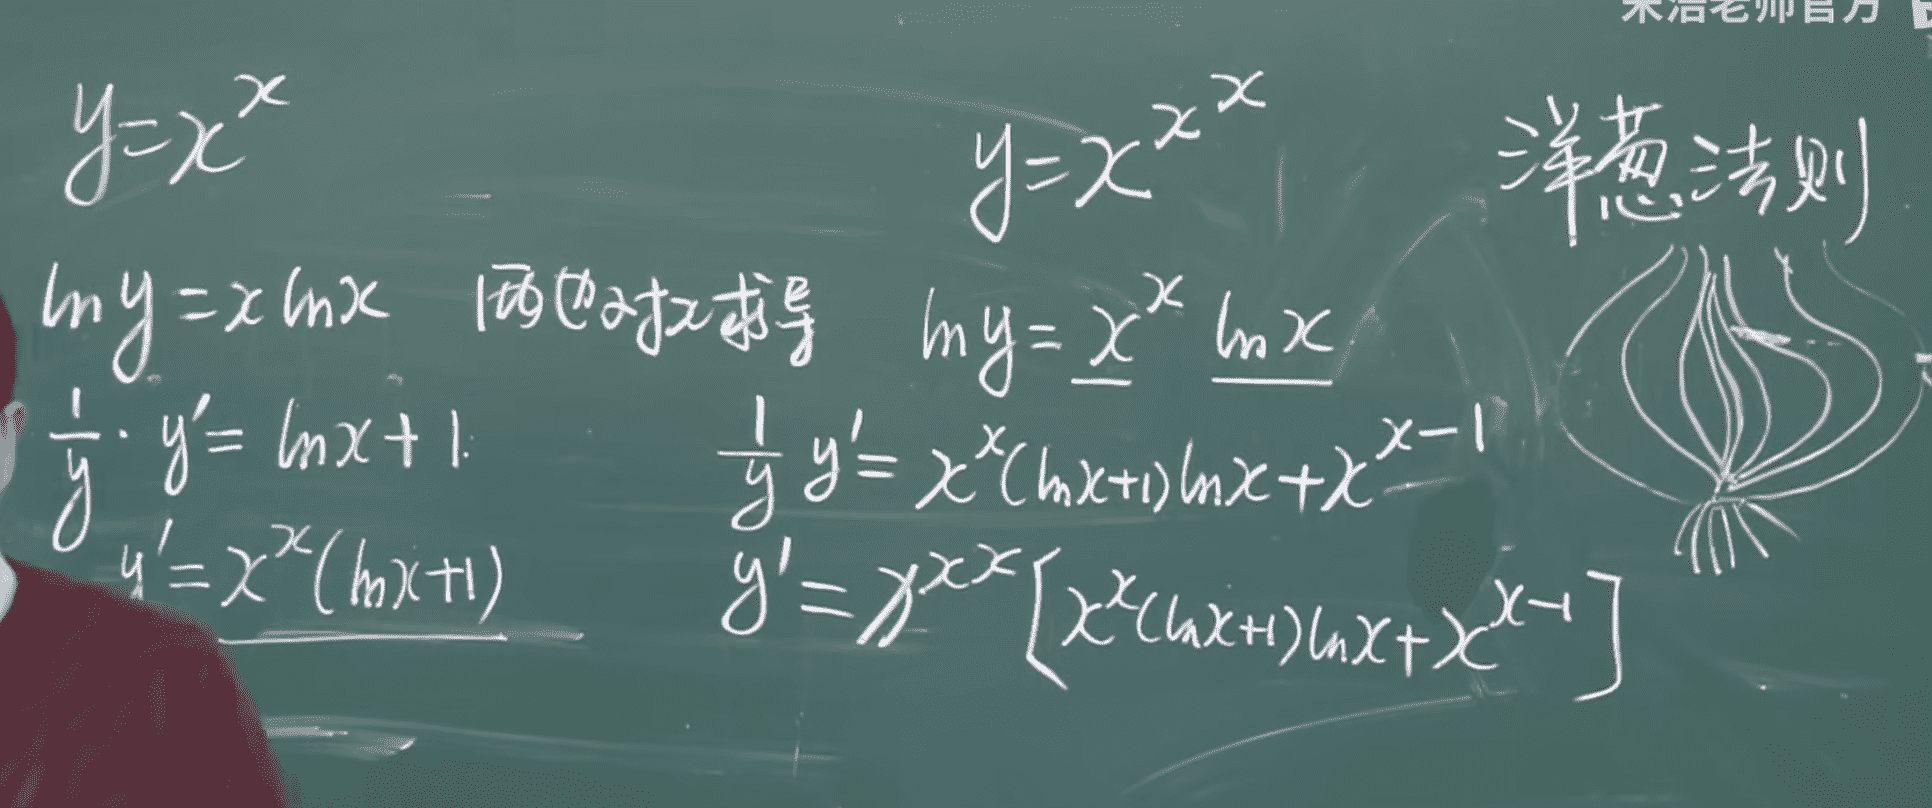 宋浩老师官方
y=x^x
ln y = x ln x 两边对x求导
1/y · y' = ln x + 1
y' = x^x (ln x + 1)
y = x^{x^x}
ln y = x^x ln x
1/y y' = x^x (ln x + 1) ln x + x^{x-1}
y' = x^{x^x} [x^x (ln x + 1) ln x + x^{x-1}]
洋葱法则